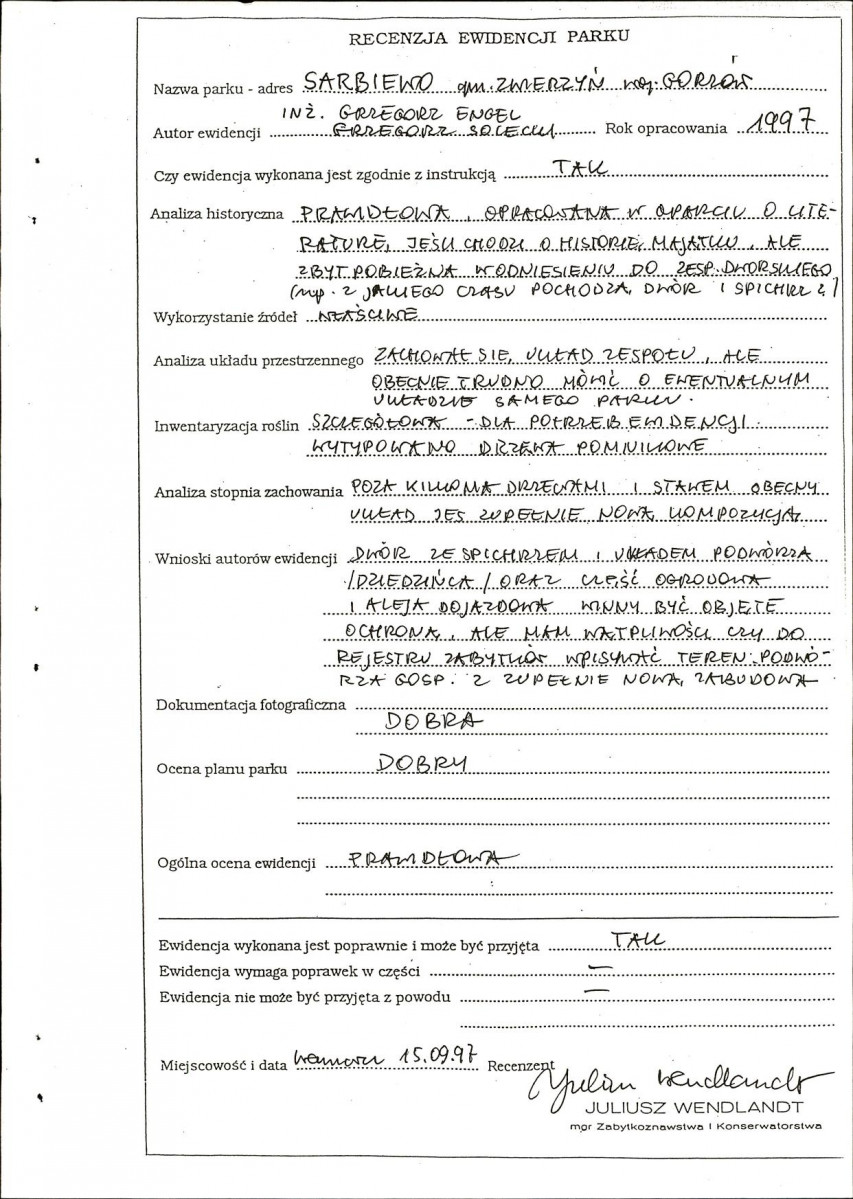 RECENZJA EWIDENCJI PARKU
Nazwa parku - adres SARBIEWO gm. ZWIERZYŃ woj. GORZÓW
INŻ. GRZEGORZ ENGEL
Autor ewidencji GRZEGORZ SOLECKI Rok opracowania 1997
Czy ewidencja wykonana jest zgodnie z instrukcją TAK
Analiza historyczna PRAWIDŁOWA, OPRACOWANA W OPARCIU O LITE-
RATURĘ, JEŚLI CHODZI O HISTORIĘ MAJĄTKU, ALE
ZBYT POBIEŻNA W ODNIESIENIU DO ZESP. DWORSKIEGO
(np. Z JAKIEGO CZASU POCHODZĄ DWÓR I SPICHRZ?)
Wykorzystanie źródeł WŁAŚCIWE
Analiza układu przestrzennego ZACHOWAŁ SIĘ UKŁAD ZESPOŁU, ALE
OBECNIE TRUDNO MÓWIĆ O EWENTUALNYM
UKŁADZIE SAMEGO PARKU.
Inwentaryzacja roślin SZCZEGÓŁOWA - DLA POTRZEB EWIDENCJI.
WYTYPOWANO DRZEWA POMNIKOWE
Analiza stopnia zachowania POZA KILKOMA DRZEWAMI I STAWEM OBECNY
UKŁAD JES ZUPEŁNIE NOWĄ KOMPOZYCJĄ
Wnioski autorów ewidencji DWÓR ZE SPICHRZEM I UKŁADEM PODWÓRZA
/DZIEDZIŃCA/ ORAZ CZĘŚĆ OGRODOWA
I ALEJA DOJAZDOWA WINNY BYĆ OBJĘTE
OCHRONĄ, ALE MAM WĄTPLIWOŚCI CZY DO
REJESTRU ZABYTKÓW WPISYWAĆ TEREN PODWÓ-
RZA GOSP. Z ZUPEŁNIE NOWĄ ZABUDOWĄ
Dokumentacja fotograficzna
DOBRA
Ocena planu parku DOBRY
Ogólna ocena ewidencji PRAWIDŁOWA
Ewidencja wykonana jest poprawnie i może być przyjęta TAK
Ewidencja wymaga poprawek w części —
Ewidencja nie może być przyjęta z powodu —
Miejscowość i data 15.09.97 Recenzent
JULIUSZ WENDLANDT
mgr Zabytkoznawstwa i Konserwatorstwa